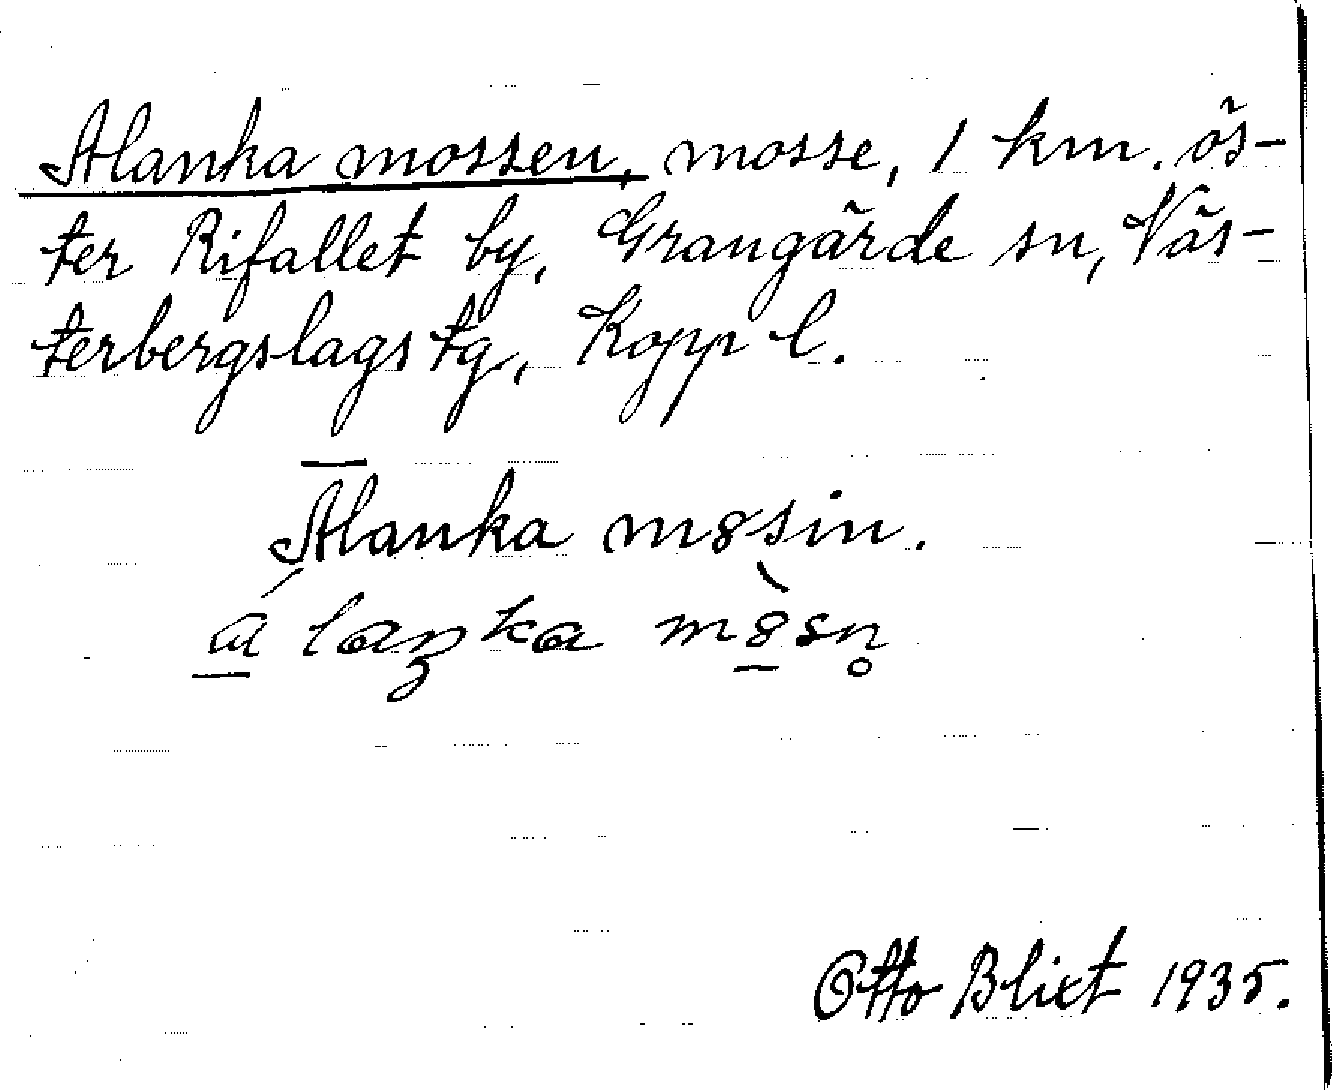 Alanka mossen, mosse, 1 km. ös-
ter Rifallet by, Grangärde sn, Väs-
terbergslags tg, Kopp l.
Alanka m8sin.
á laŋka m8̀sn̥
Otto Blixt 1935.